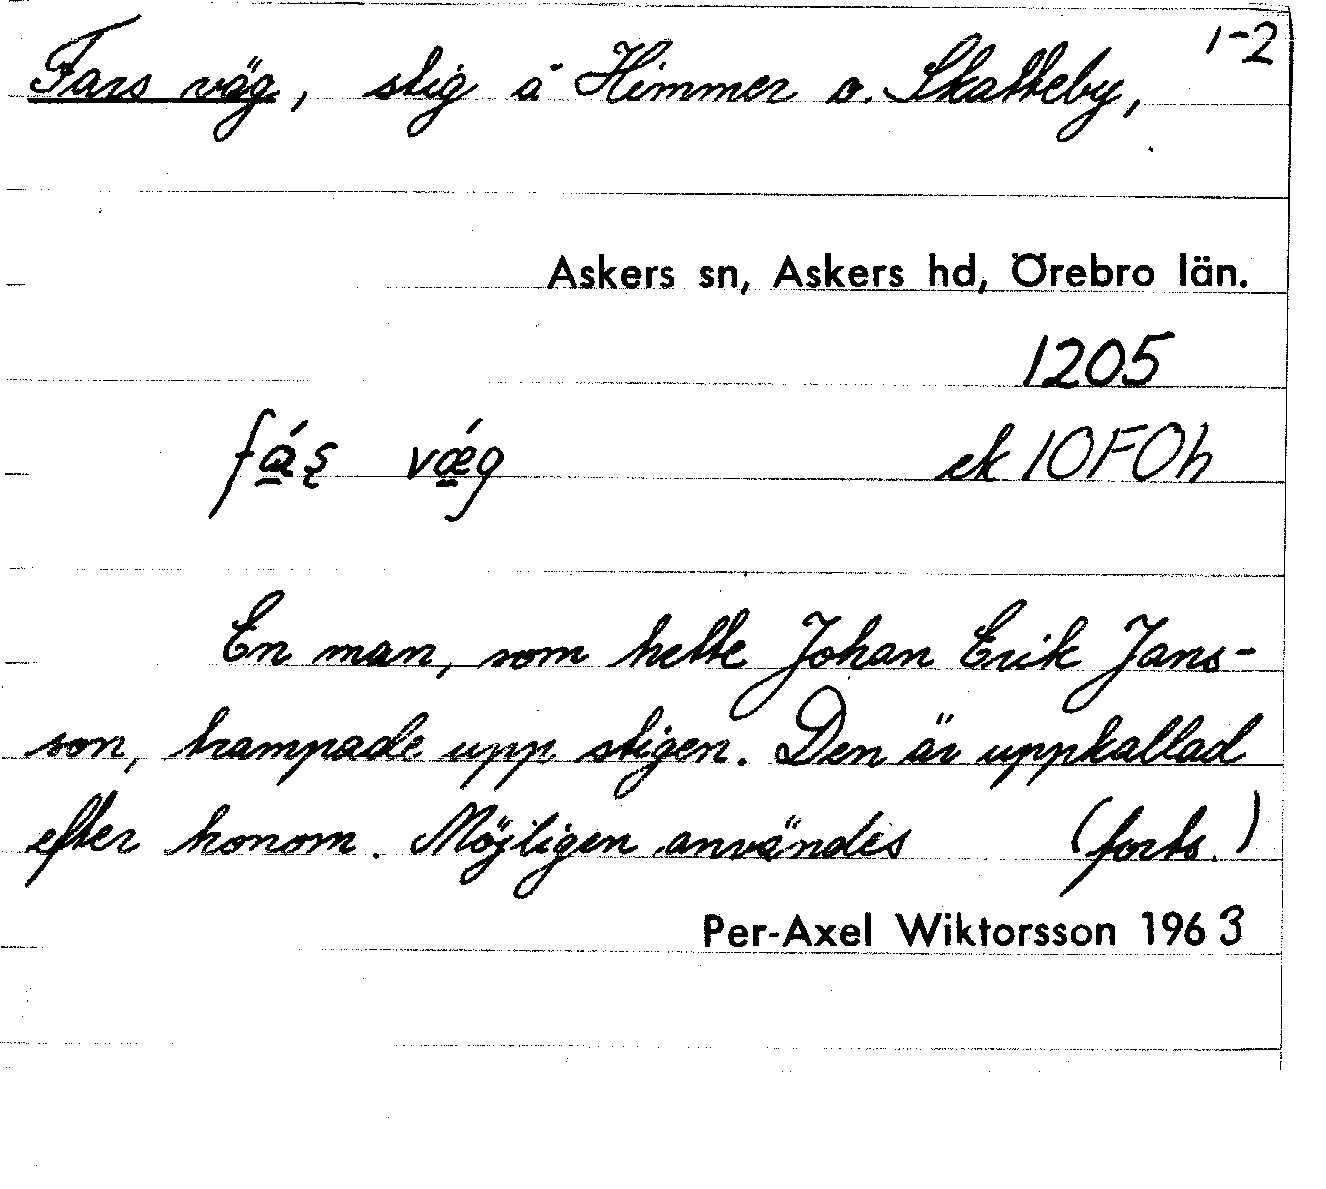 1-2
Fars väg, stig å Himmer o. Skatteby,
Askers sn, Askers hd, Örebro län.
1205
fá̱ş vǽ̱g ek 10F0h
En man, som hette Johan Erik Jans-
son, trampade upp stigen. Den är uppkallad
efter honom. Möjligen användes (forts.)
Per-Axel Wiktorsson 1963